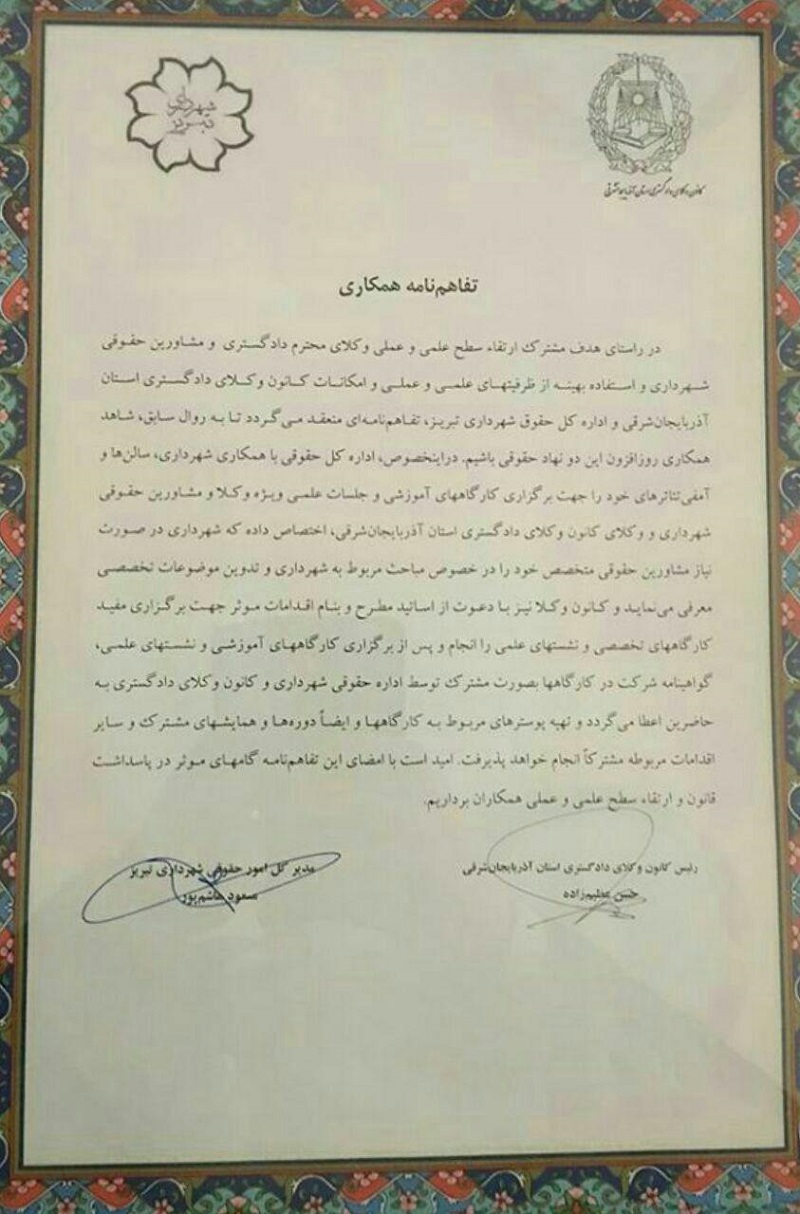 شهرداری تبریز
کانون وکلای دادگستری استان آذربایجان‌شرقی
تفاهم‌نامه همکاری
در راستای هدف مشترک ارتقاء سطح علمی و عملی وکلای محترم دادگستری و مشاورین حقوقی
شهرداری و استفاده بهینه از ظرفیتهای علمی و عملی و امکانات کانون وکلای دادگستری استان
آذربایجان‌شرقی و اداره کل حقوق شهرداری تبریز، تفاهم‌نامه‌ای منعقد می‌گردد تا به روال سابق، شاهد
همکاری روزافزون این دو نهاد حقوقی باشیم. دراینخصوص، اداره کل حقوقی با همکاری شهرداری، سالن‌ها و
آمفی‌تئاترهای خود را جهت برگزاری کارگاههای آموزشی و جلسات علمی ویژه وکلا و مشاورین حقوقی
شهرداری و وکلای کانون وکلای دادگستری استان آذربایجان‌شرقی، اختصاص داده که شهرداری در صورت
نیاز مشاورین حقوقی متخصص خود را در خصوص مباحث مربوط به شهرداری و تدوین موضوعات تخصصی
معرفی می‌نماید و کانون وکلا نیز با دعوت از اساتید مطرح و بنام اقدامات موثر جهت برگزاری مفید
کارگاههای تخصصی و نشستهای علمی را انجام و پس از برگزاری کارگاههای آموزشی و نشستهای علمی،
گواهینامه شرکت در کارگاهها بصورت مشترک توسط اداره حقوقی شهرداری و کانون وکلای دادگستری به
حاضرین اعطا می‌گردد و تهیه پوسترهای مربوط به کارگاهها و ایضاً دوره‌ها و همایشهای مشترک و سایر
اقدامات مربوطه مشترکاً انجام خواهد پذیرفت. امید است با امضای این تفاهم‌نامه گامهای موثر در پاسداشت
قانون و ارتقاء سطح علمی و عملی همکاران برداریم.
رئیس کانون وکلای دادگستری استان آذربایجان‌شرقی
حسن عظیم‌زاده
مدیر کل امور حقوقی شهرداری تبریز
مسعود هاشم‌پور